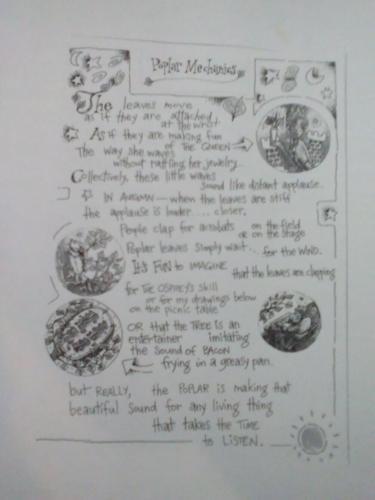 Poplar Mechanics
The leaves move
as if they are attached
at the wrist
As if they are making fun
of THE QUEEN
The way she waves
without rattling her jewelry...
Collectively, these little waves
sound like distant applause.
IN AUTUMN — when the leaves are stiff
the applause is louder.... closer.
People clap for acrobats on the field
or on the stage
Poplar leaves simply wait... for the WIND.
It's FUN to IMAGINE that the leaves are clapping
for THE OSPREY'S skill
or for my drawings below
on the picnic table
OR that the TREE is an
entertainer imitating
the SOUND of BACON
frying in a greasy pan.
but REALLY, the POPLAR is making that
beautiful sound for any living thing
that takes the TIME
to LISTEN.